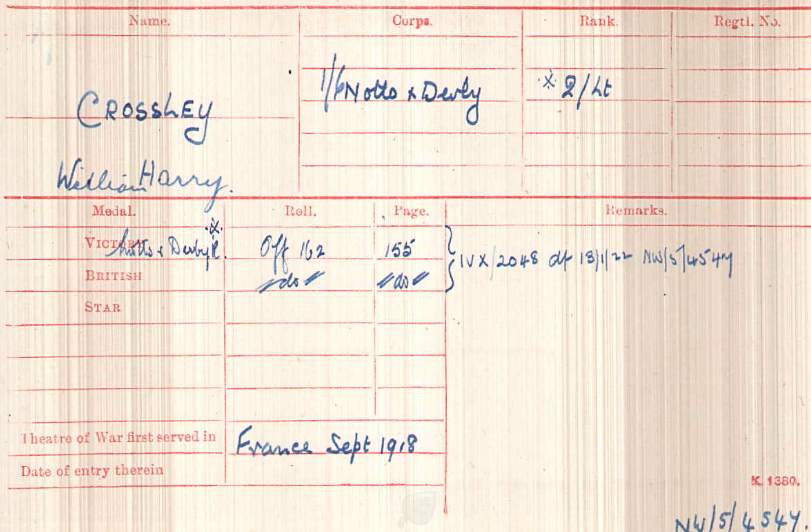 Name. Corps. Rank. Regtl. No.
CROSSLEY 1/6 Notts & Derby ※ 2/Lt
William Harry.
Medal. Roll. Page. Remarks.
VICTORY Notts & Derby R. ※ Off 162 155 IVX/2048 df 13/1/22 NW/5/4547
BRITISH do do
STAR
Theatre of War first served in France Sept 1918
Date of entry therein
K. 1380.
NW/5/4547.